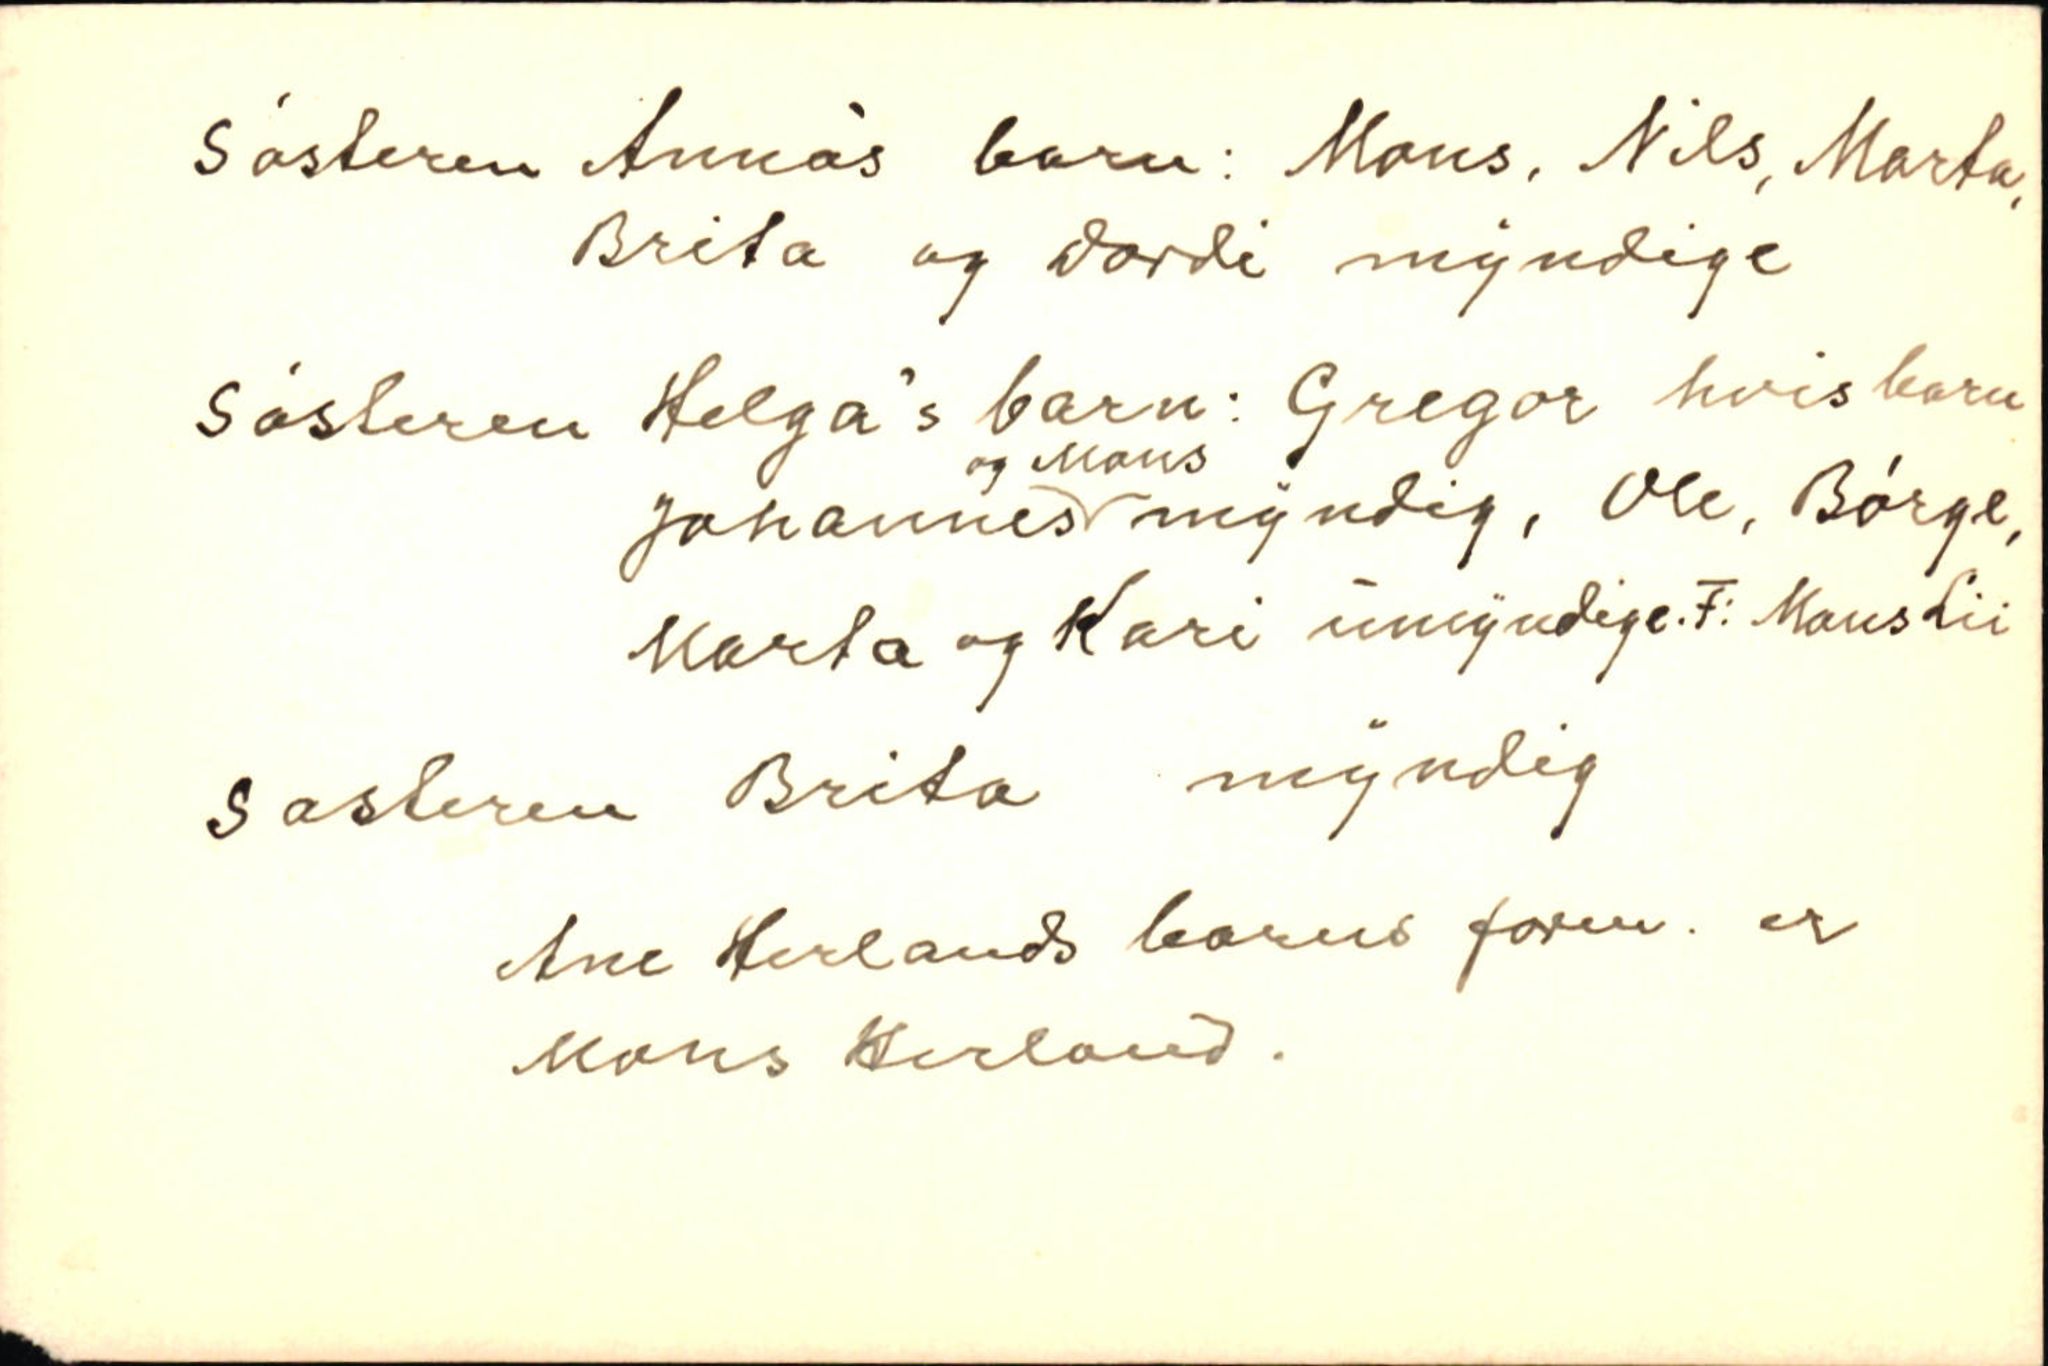 Sósteren Anna's barn: Mons, Nils, Marta,
Brita og Dordi myndige
Sósteren Helga's barn: Gregor hvis barn
og Mons
Johannes myndig, Ole, Bórge,
Marta og Kari umyndige. F: Mons Lii
Sosteren Brita myndig
Ane Herlands barns form. er
Mons Herland.